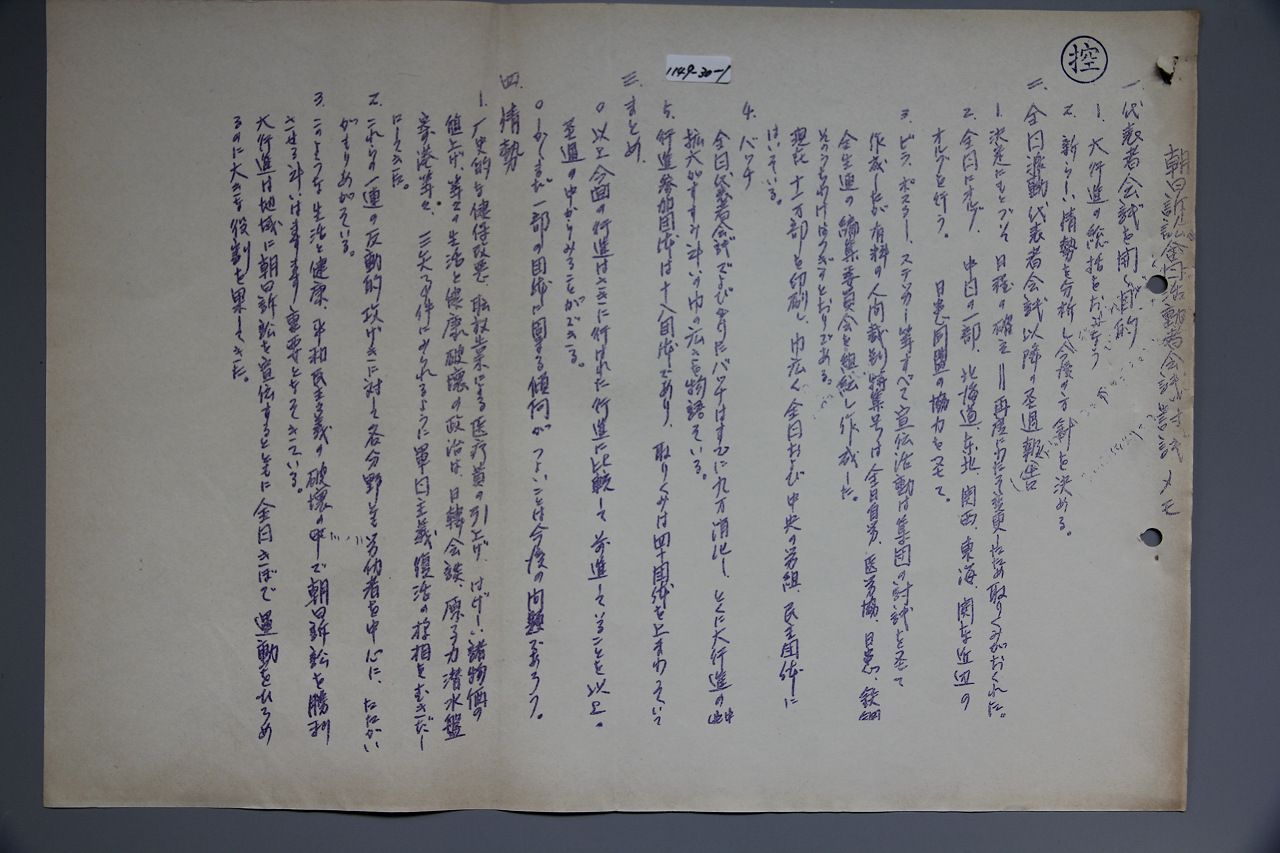 控
1149-30-1
朝日訴訟全国活動者会議討議メモ
一、代表者会議を開く目的
1. 大行進の総括をおこなう
2. 新らしい情勢を分析し今後の方針を決める。
二、全国運動代表者会議以降の経過報告
1. 決定にもとづいて日程の確立 再度にわたって変更したため取りくみがおくれた。
2. 全国にオルグ 中国の一部、北海道、東北、関西、東海、関東近辺の
オルグを行う。 日患同盟の協力をえて。
3. ビラ、ポスター、ステッカー等すべて宣伝活動は集団の討議をえて
作成したが有料の人間裁判特集号は全日自労、医労協、日患、鉄鋼
全生連の編集委員会を組織し作成した。
そのうちわけはつぎのとおりである。
現在十一万部を印刷し、巾広く全国および中央の労組、民主団体に
はいっている。
4. バッヂ
全国代表者会議でよびかけたバッヂはすでに九万消化し、とくに大行進の中
拡大がすすみ斗いの巾の広さを物語っている。
5. 行進参加団体は十八団体であり、取りくみは四十団体を上まわっていて
三、まとめ
○ 以上今回の行進はさきに行われた行進に比較して前進していることを以上の
経過の中からみることができる。
○ しかしまだ一部の団体に固まる傾向がつよいことは今後の問題であろう。
四、情勢
1. 歴史的な健保改悪、職権告示による医療費の引上げ、はげしい諸物価の
値上げ、等々の生活と健康破壊の政治は、日韓会談、原子力潜水艦
寄港等々、三矢事件にみられるように軍国主義復活の様相をむきだし
にしてきた。
2. これらの一連の反動的政策に対して各分野で労仂者を中心に、たたかい
がもりあがっている。
3. このような生活と健康、平和民主主義の破壊の中で朝日訴訟を勝利
させる斗いはますます重要となってきている。
大行進は地域に朝日訴訟を宣伝するとともに全国きぼで運動をひろめ
るのに大きな役割を果してきた。